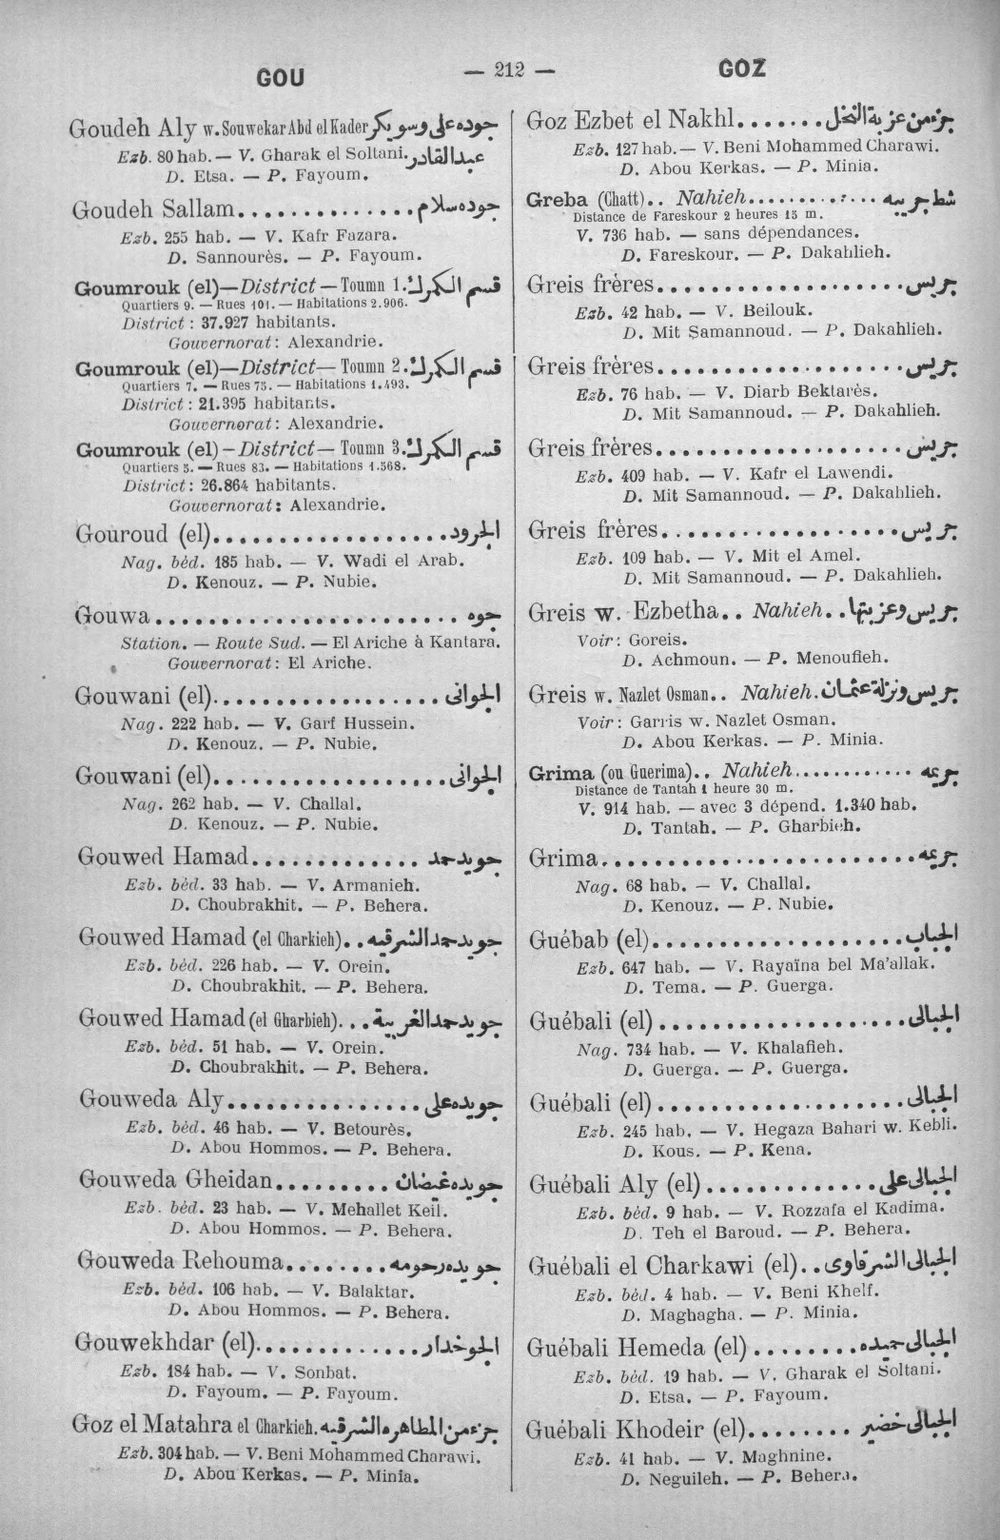 GOU
— 212 —
GOZ
Goudeh Aly w. Souwekar Abd el Kader جوده على وسويكر
Ezb. 80 hab. — V. Gharak el Soltani. عبدالقادر
D. Etsa. — P. Fayoum.
Goudeh Sallam.............. جوده سلام
Ezb. 255 hab. — V. Kafr Fazara.
D. Sannourès. — P. Fayoum.
Goumrouk (el)—District—Toumn 1. قسم الكمرك
Quartiers 9. — Rues 101. — Habitations 2.906.
District : 37.927 habitants.
Gouvernorat : Alexandrie.
Goumrouk (el)—District—Toumn 2. قسم الكمرك
Quartiers 7. — Rues 75. — Habitations 1.493.
District : 21.395 habitants.
Gouvernorat : Alexandrie.
Goumrouk (el)—District—Toumn 3. قسم الكمرك
Quartiers 5. — Rues 83. — Habitations 1.568.
District : 26.864 habitants.
Gouvernorat : Alexandrie.
Gouroud (el).................. الجرود
Nag. béd. 185 hab. — V. Wadi el Arab.
D. Kenouz. — P. Nubie.
Gouwa....................... جوه
Station. — Route Sud. — El Ariche à Kantara.
Gouvernorat : El Ariche.
Gouwani (el).................. الجوانى
Nag. 222 hab. — V. Garf Hussein.
D. Kenouz. — P. Nubie.
Gouwani (el).................. الجوانى
Nag. 262 hab. — V. Challal.
D. Kenouz. — P. Nubie.
Gouwed Hamad............. جويد حمد
Ezb. béd. 33 hab. — V. Armanieh.
D. Choubrakhit. — P. Behera.
Gouwed Hamad (el Charkieh).. جويد حمد الشرقيه
Ezb. béd. 226 hab. — V. Orein.
D. Choubrakhit. — P. Behera.
Gouwed Hamad (el Gharbieh)... جويد حمد الغربية
Ezb. béd. 51 hab. — V. Orein.
D. Choubrakhit. — P. Behera.
Gouweda Aly............... جويده على
Ezb. béd. 46 hab. — V. Betourès.
D. Abou Hommos. — P. Behera.
Gouweda Gheidan......... جويده غيضان
Ezb. béd. 23 hab. — V. Mehallet Keil.
D. Abou Hommos. — P. Behera.
Gouweda Rehouma........ جويده رحومه
Ezb. béd. 106 hab. — V. Balaktar.
D. Abou Hommos. — P. Behera.
Gouwekhdar (el)............. الجوخدار
Ezb. 184 hab. — V. Sonbat.
D. Fayoum. — P. Fayoum.
Goz el Matahra el Charkieh. جزء من المطاهره الشرقيه
Ezb. 304 hab. — V. Beni Mohammed Charawi.
D. Abou Kerkas. — P. Minia.
Goz Ezbet el Nakhl....... جزء من عزبة النخل
Ezb. 127 hab. — V. Beni Mohammed Charawi.
D. Abou Kerkas. — P. Minia.
Greba (Chatt).. Nahieh............ شط جريبه
Distance de Fareskour 2 heures 15 m.
V. 736 hab. — sans dépendances.
D. Fareskour. — P. Dakahlieh.
Greis frères.................... جريس
Ezb. 42 hab. — V. Beilouk.
D. Mit Samannoud. — P. Dakahlieh.
Greis frères.................... جريس
Ezb. 76 hab. — V. Diarb Bektarès.
D. Mit Samannoud. — P. Dakahlieh.
Greis frères.................... جريس
Ezb. 409 hab. — V. Kafr el Lawendi.
D. Mit Samannoud. — P. Dakahlieh.
Greis frères.................... جريس
Ezb. 109 hab. — V. Mit el Amel.
D. Mit Samannoud. — P. Dakahlieh.
Greis w. Ezbetha.. Nahieh.. جريس وعزبتها
Voir : Goreis.
D. Achmoun. — P. Menoufieh.
Greis w. Nazlet Osman.. Nahieh. جريس ونزلة عثمان
Voir : Garris w. Nazlet Osman.
D. Abou Kerkas. — P. Minia.
Grima (ou Guerima).. Nahieh............ جريمه
Distance de Tantah 1 heure 30 m.
V. 914 hab. — avec 3 dépend. 1.340 hab.
D. Tantah. — P. Gharbieh.
Grima........................ جريمه
Nag. 68 hab. — V. Challal.
D. Kenouz. — P. Nubie.
Guébab (el)................... الجباب
Ezb. 647 hab. — V. Rayaïna bel Ma'allak.
D. Tema. — P. Guerga.
Guébali (el)................... الجبالى
Nag. 734 hab. — V. Khalafieh.
D. Guerga. — P. Guerga.
Guébali (el)................... الجبالى
Ezb. 245 hab. — V. Hegaza Bahari w. Kebli.
D. Kous. — P. Kena.
Guébali Aly (el)............. الجبالى على
Ezb. béd. 9 hab. — V. Rozzafa el Kadima.
D. Teh el Baroud. — P. Behera.
Guébali el Charkawi (el).. الجبالى الشرقاوى
Ezb. béd. 4 hab. — V. Beni Khelf.
D. Maghagha. — P. Minia.
Guébali Hemeda (el)........ الجبالى حميده
Ezb. béd. 19 hab. — V. Gharak el Soltani.
D. Etsa. — P. Fayoum.
Guébali Khodeir (el)........ الجبالى خضير
Ezb. 41 hab. — V. Maghnine.
D. Neguileh. — P. Behera.